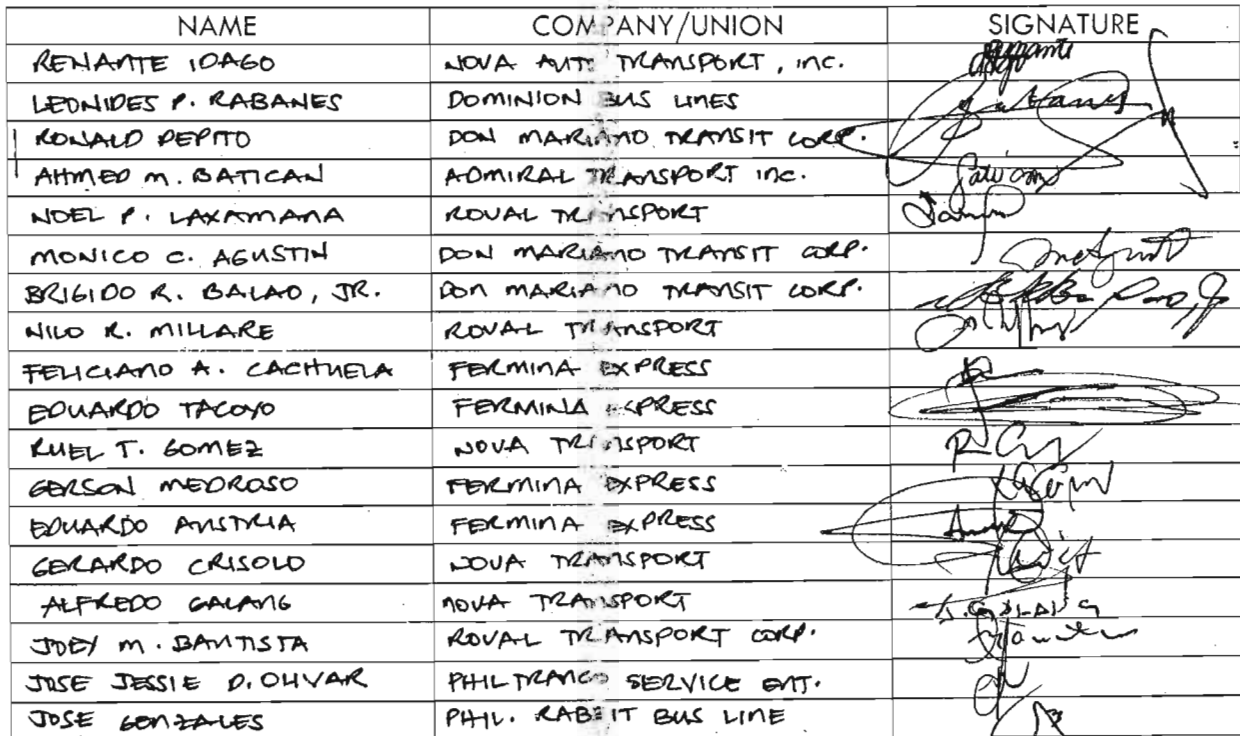 NAME COMPANY/UNION SIGNATURE
RENANTE IDAGO NOVA AUTO TRANSPORT, INC.
LEONIDES P. RABANES DOMINION BUS LINES
RONALD PEPITO DON MARIANO TRANSIT CORP.
AHMED M. BATICAN ADMIRAL TRANSPORT INC.
NOEL P. LAXAMANA ROVAL TRANSPORT
MONICO C. AGUSTIN DON MARIANO TRANSIT CORP.
BRIGIDO R. BALAO, JR. DON MARIANO TRANSIT CORP.
NILO R. MILLARE ROVAL TRANSPORT
FELICIANO A. CACHUELA FERMINA EXPRESS
EDUARDO TACOYO FERMINA EXPRESS
RUEL T. GOMEZ NOVA TRANSPORT
GERSON MEDROSO FERMINA EXPRESS
EDUARDO AUSTRIA FERMINA EXPRESS
GERARDO CRISOLO NOVA TRANSPORT
ALFREDO GALANG NOVA TRANSPORT
JOEY M. BAUTISTA ROVAL TRANSPORT CORP.
JOSE JESSIE D. OLIVAR PHILTRANCO SERVICE ENT.
JOSE GONZALES PHIL. RABBIT BUS LINE